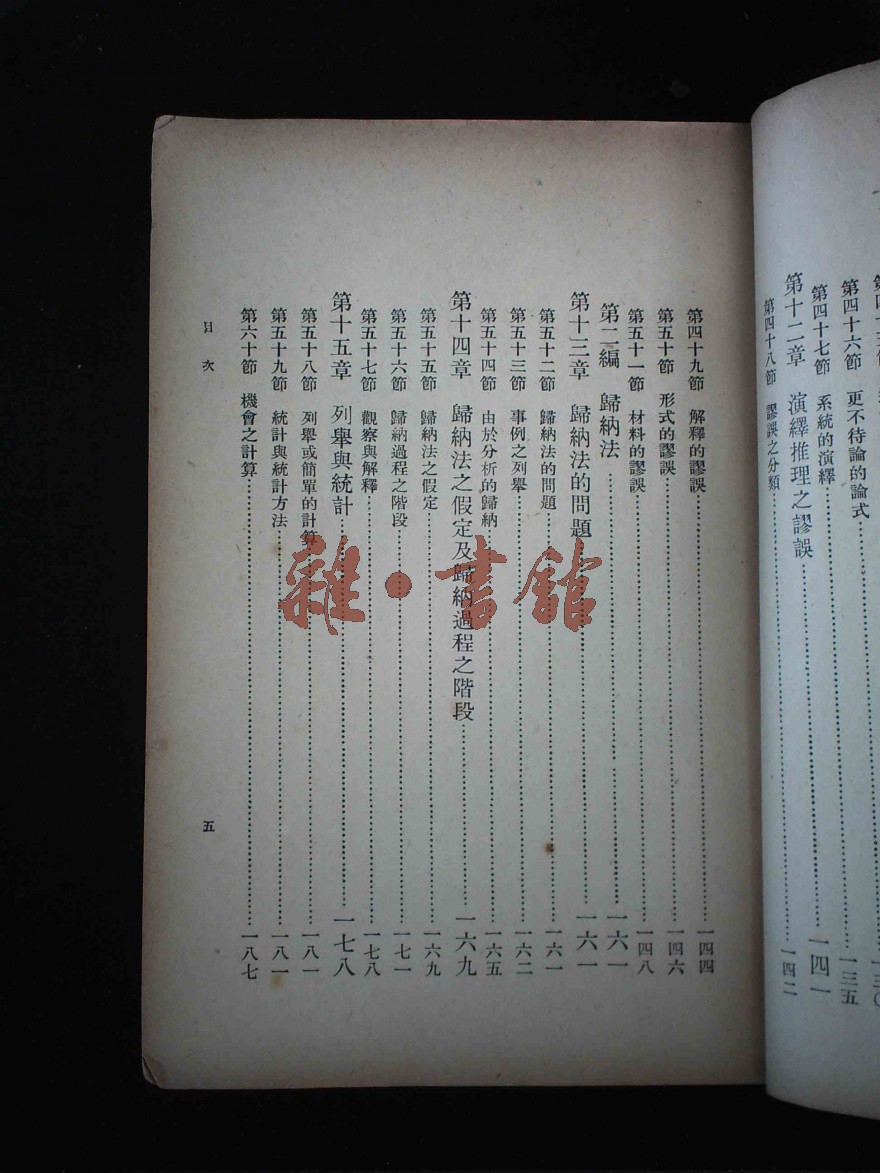 第四十六節　更不待論的論式……一三五
第四十七節　系統的演繹……一四一
第十二章　演繹推理之謬誤
第四十八節　謬誤之分類……一四二
第四十九節　解釋的謬誤……一四四
第五十節　形式的謬誤……一四六
第五十一節　材料的謬誤……一四八
第二編　歸納法……一六一
第十三章　歸納法的問題……一六一
第五十二節　歸納法的問題……一六一
第五十三節　事例之列舉……一六二
第五十四節　由於分析的歸納……一六五
第十四章　歸納法之假定及歸納過程之階段……一六九
第五十五節　歸納法之假定……一六九
第五十六節　歸納過程之階段……一七一
第五十七節　觀察與解釋……一七八
第十五章　列舉與統計……一七八
第五十八節　列舉或簡單的計算……一八一
第五十九節　統計與統計方法……一八一
第六十節　機會之計算……一八七
目次
五
雜·書館